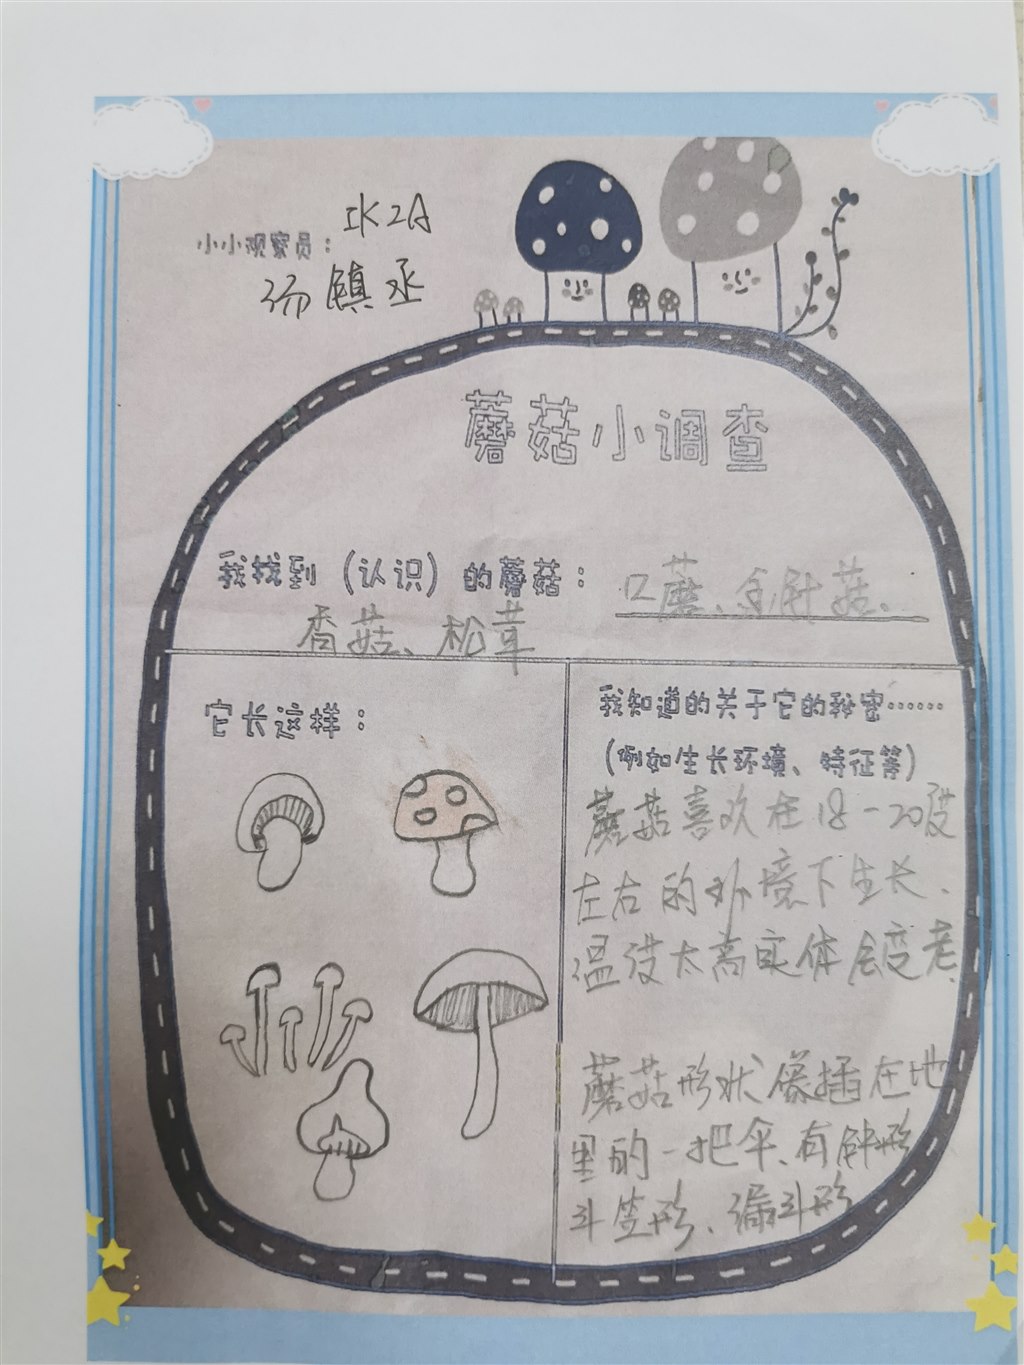 IK2A
小小观察员：
汤镇丞
蘑菇小调查
我找到（认识）的蘑菇： 口蘑、金针菇、
香菇、松茸
它长这样：
我知道的关于它的秘密……
（例如生长环境、特征等）
蘑菇喜欢在18-20度
左右的环境下生长、
温度太高实体会变老、
蘑菇形状像插在地
里的一把伞、有钟形
斗笠形、漏斗形